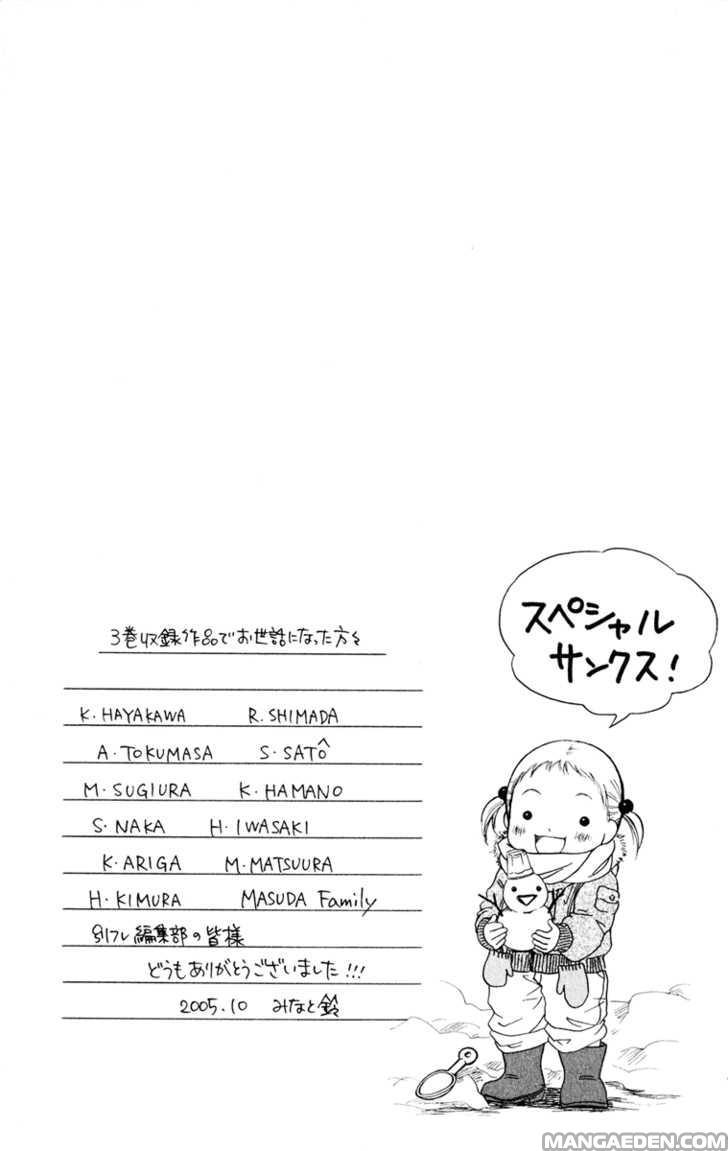 スペシャル
サンクス!
3巻収録作品でお世話になった方々
K. HAYAKAWA R. SHIMADA
A. TOKUMASA S. SATÔ
M. SUGIURA K. HAMANO
S. NAKA H. IWASAKI
K. ARIGA M. MATSUURA
H. KIMURA MASUDA Family
別フレ編集部の皆様
どうもありがとうございました!!!
2005.10 みなと鈴
MANGAEDEN.COM